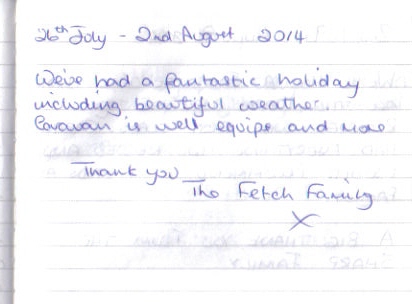 26th July - 2nd August 2014
We've had a fantastic holiday
including beautiful weather.
Caravan is well equips and more
Thank you
The Fetch Family
X